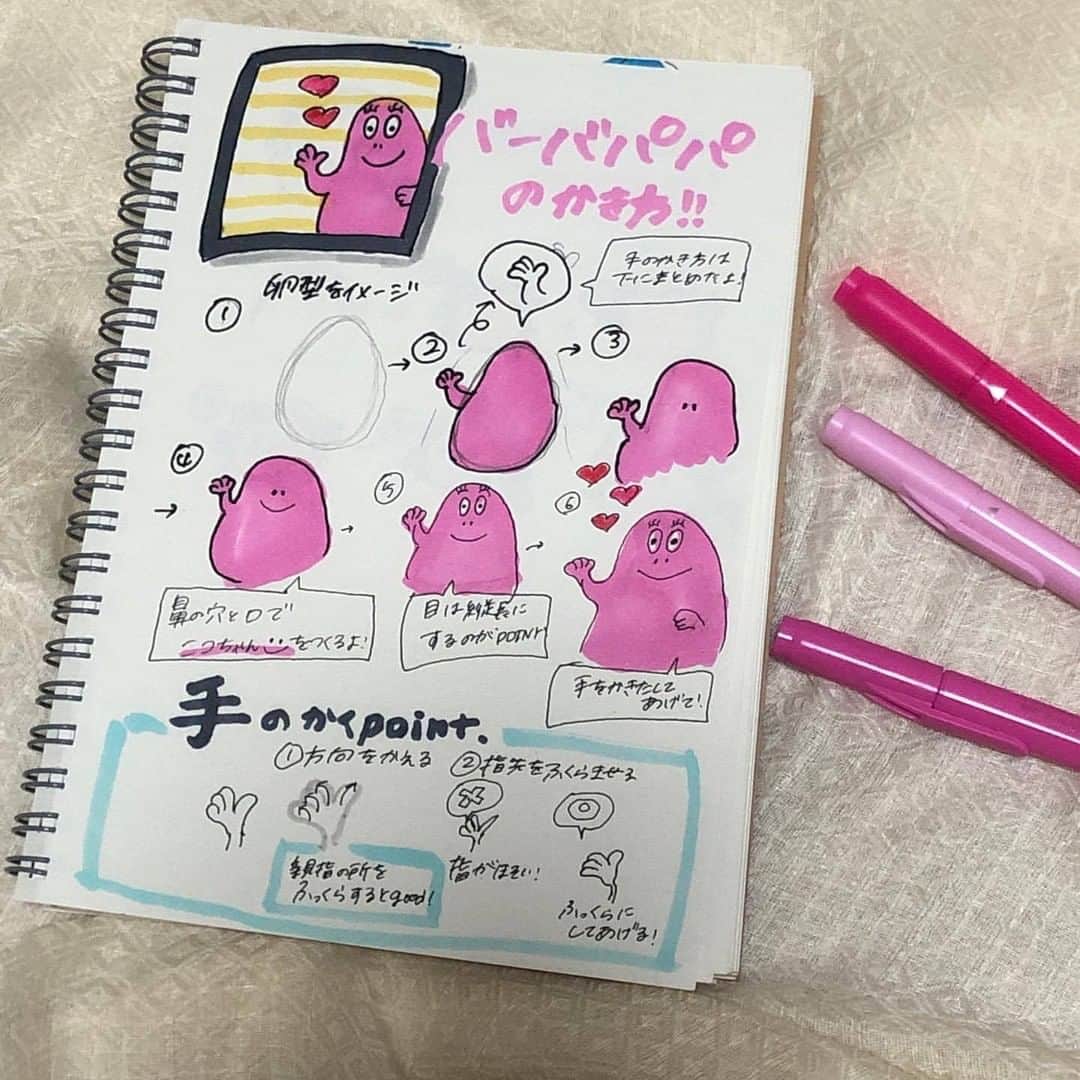 バーバパパ
のかき方!!
手のかき方は
下にまとめたよ!
卵型をイメージ
①
②
③
④
⑤
⑥
鼻の穴と口で
ニコちゃんをつくるよ!
目は縦長に
するのがPOINT
手をかきたして
あげて!
手のかくpoint.
①方向をかえる
②指先をふくらませる
親指の所を
ふっくらするとgood!
指がほそい!
ふっくらに
してあげる!